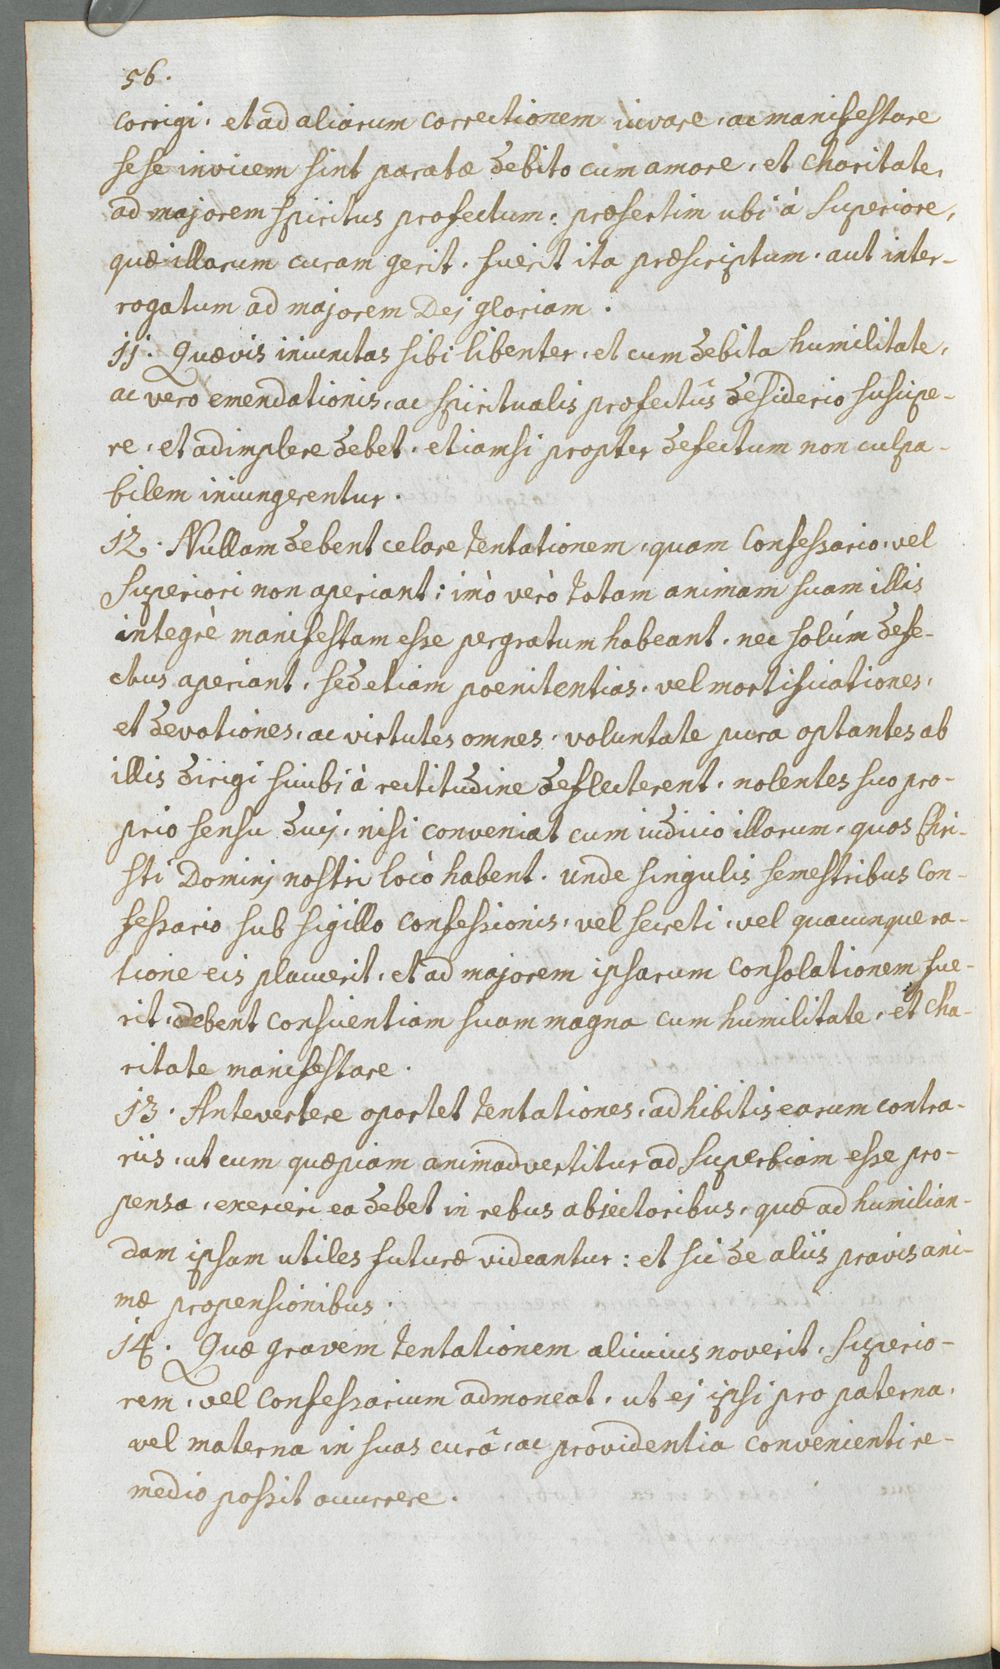 56.
corrigi, et ad aliarum correctionem iuvare, ac manifestare
sese invicem sint paratæ debito cum amore, et charitate,
ad majorem spiritus profectum: præsertim ubi à Superiore,
quæ illarum curam gerit, fuerit ita præscriptum, aut inter-
rogatum ad majorem Dej gloriam.
11. Quævis iniunctas sibi libenter, et cum debita humilitate,
ac vero emendationis, ac spiritualis profectûs desiderio suscipe-
re, et adimplere debet, etiamsi propter defectum non culpa-
bilem iniungerentur.
12. Nullam debent celare tentationem, quam Confessario, vel
Superiori non aperiant: imò verò totam animam suam illis
integrè manifestam esse pergratum habeant, nec solúm defe-
ctus aperiant, sed etiam poenitentias, vel mortificationes,
et devotiones, ac virtutes omnes, voluntate pura optantes ab
illis dirigi sicubi à rectitudine deflecterent, nolentes suo pro-
prio sensu duci, nisi conveniat cum iudicio illorum, quos Chri-
sti Dominj nostri locò habent. Unde singulis semestribus Con-
fessario sub sigillo confessionis, vel secreti, vel quacunque ra-
tione eis placuerit, et ad majorem ipsarum consolationem fue-
rit, debent conscientiam suam magna cum humilitate, et cha-
ritate manifestare.
13. Antevertere oportet tentationes, adhibitis earum contra-
riis, ut cum quæpiam animadvertitur ad superbiam esse pro-
pensa, exerceri ea debet in rebus abiectoribus, quæ ad humilian-
dam ipsam utiles futuræ videantur: et sic de aliis pravis ani-
mæ propensionibus.
14. Quæ gravem tentationem alicuius noverit, Superio-
rem, vel Confessarium admoneat, ut ej ipsi pro paterna,
vel materna in suas curâ, ac providentia convenienti re-
medio possit occurrere.